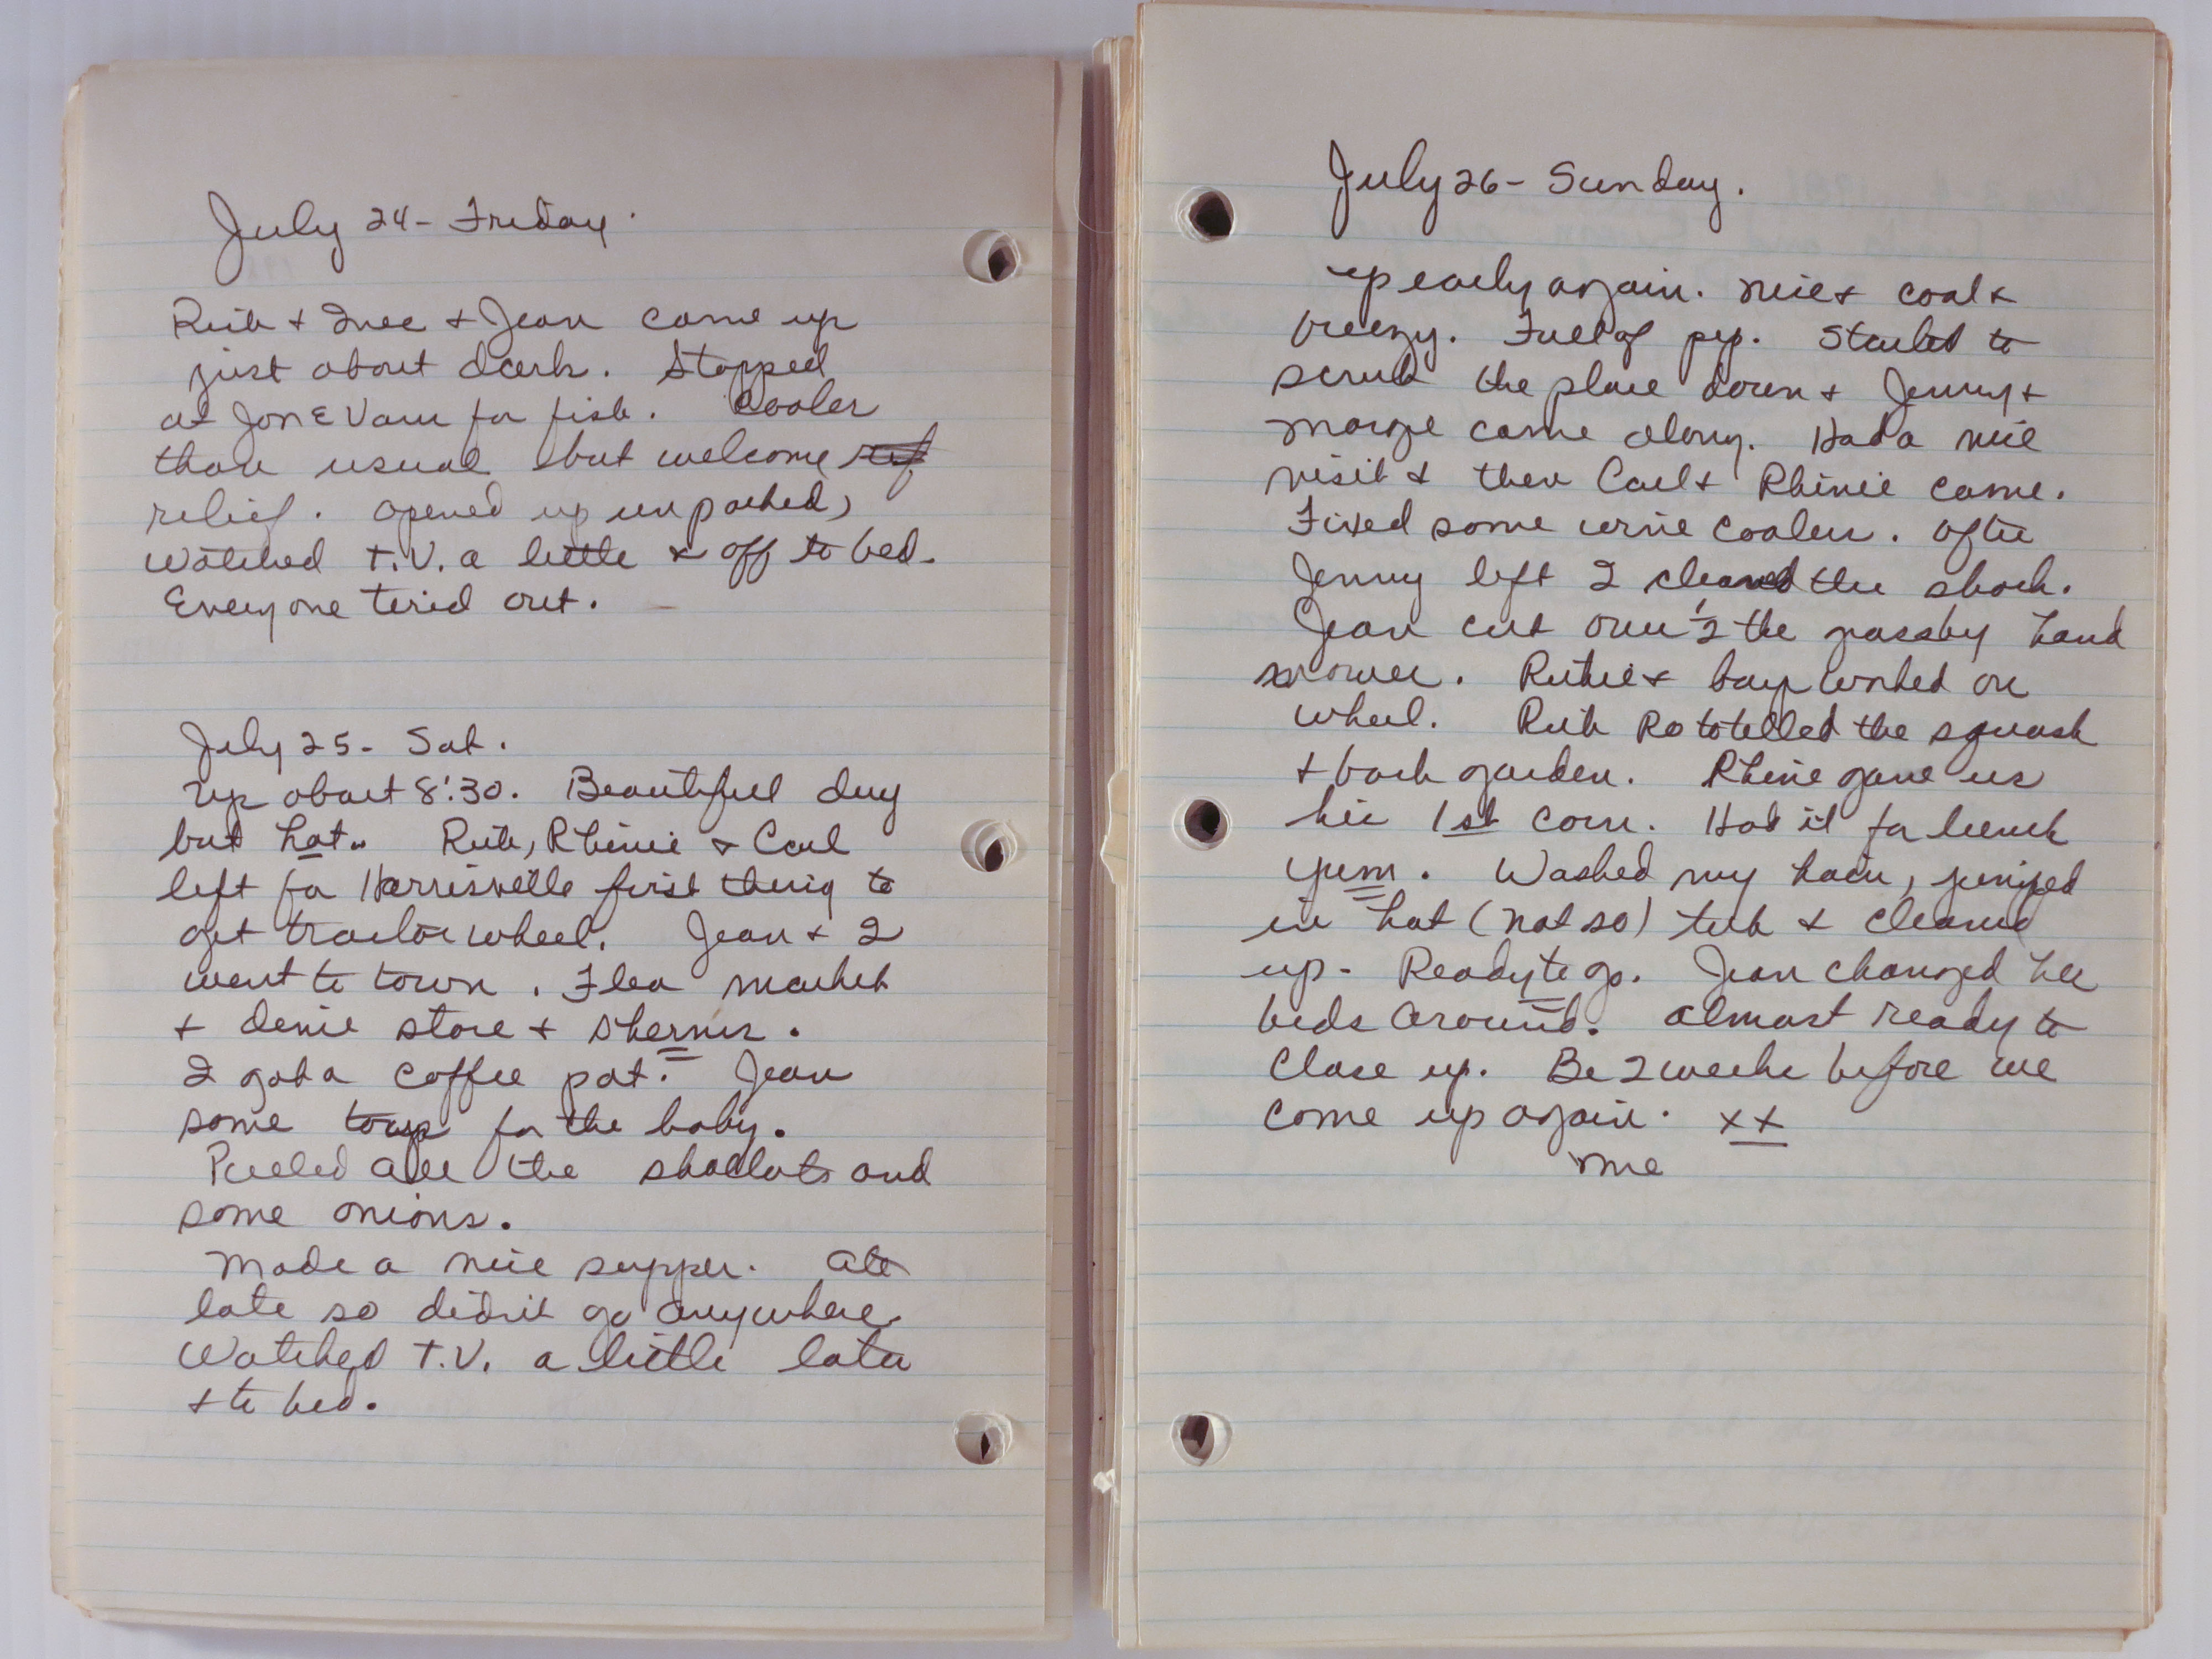 July 24 - Friday.
+ Jean came up
just about dark. Stopped
at Jon E Vann for fish. Cooler
than usual but welcome
relief. opened up unpacked,
watched T.V. a little + off to bed.
Everyone tired out.
July 25 - Sat.
Up about 8:30. Beautiful day
but hot. Rhinie + Carl
left for Harrisville first thing to
get tractor wheel. Jean + I
went to town. Flea market
+ dime store + Sherms.
I got a coffee pot. Jean
some toys for the baby.
Pulled all the shallots and
some onions.
Made a nice supper. Ate
late so didn't go anywhere.
Watched T.V. a little later
+ to bed.
July 26 - Sunday.
up early again. nice + cool +
breezy. Full of pep. Started to
scrub the place down + Jenny +
Marge came along. Had a nice
visit + then Carl + Rhinie came.
Fixed some wine coolers. after
Jenny left I cleaned the shack.
Jean cut over 1/2 the grass by hand
mower. Ruthie + boys worked on
wheel. Rototilled the squash
+ back garden. Rhinie gave us
his 1st corn. Had it for lunch
yum. Washed my hair, jumped
in hot (not so) tub + cleaned
up - Ready to go. Jean changed her
beds around. almost ready to
close up. Be 2 weeks before we
come up again. xx
me